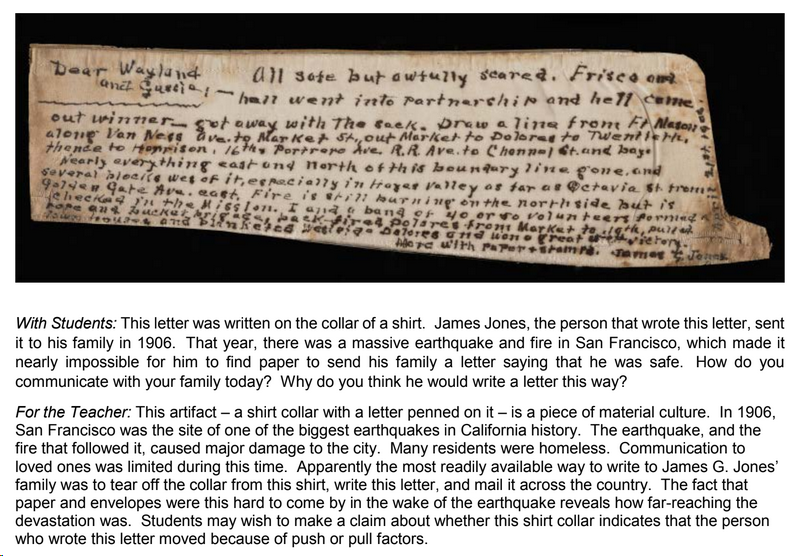 Dear Wayland
and Gussie,—
All safe but awfully scared. Frisco and
hell went into partnership and hell came
out winner— got away with the sack. Draw a line from Ft Mason
along Van Ness Ave. to Market St, out Market to Dolores to Twentieth,
thence to Harrison, 16th Portrero Ave. R.R. Ave. to Channel St. and bay.
Nearly everything east and north of this boundary line gone, and
several blocks wes of it, especially in Hayes Valley as far as Octavia St. from
Golden Gate Ave. east. Fire is still burning on the north side but is
checked in the Mission. I and a band of 40 or so volunteers formed a
rope and bucket brigade, back-fired Dolores from Market to 19th, pulled
down houses and blanketed Dolores and won a great victory.
More with paper + stamps. James G. Jones
With Students: This letter was written on the collar of a shirt. James Jones, the person that wrote this letter, sent
it to his family in 1906. That year, there was a massive earthquake and fire in San Francisco, which made it
nearly impossible for him to find paper to send his family a letter saying that he was safe. How do you
communicate with your family today? Why do you think he would write a letter this way?
For the Teacher: This artifact – a shirt collar with a letter penned on it – is a piece of material culture. In 1906,
San Francisco was the site of one of the biggest earthquakes in California history. The earthquake, and the
fire that followed it, caused major damage to the city. Many residents were homeless. Communication to
loved ones was limited during this time. Apparently the most readily available way to write to James G. Jones'
family was to tear off the collar from this shirt, write this letter, and mail it across the country. The fact that
paper and envelopes were this hard to come by in the wake of the earthquake reveals how far-reaching the
devastation was. Students may wish to make a claim about whether this shirt collar indicates that the person
who wrote this letter moved because of push or pull factors.